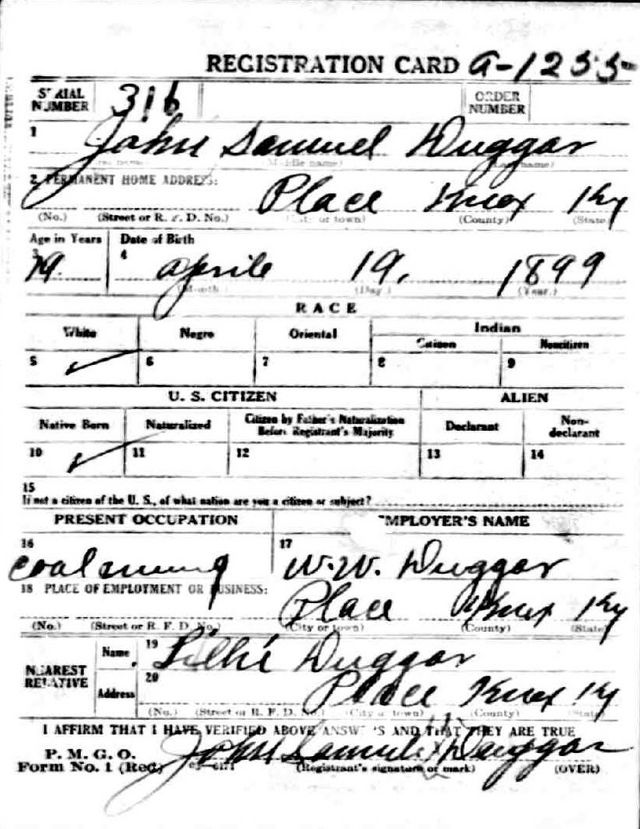 REGISTRATION CARD a-1255-
SERIAL NUMBER 316 ORDER NUMBER
1 John Samuel Duggar
(First name) (Middle name) (Last name)
2 PERMANENT HOME ADDRESS:
Place Knox Ky
(No.) (Street or R. F. D. No.) (City or town) (County) (State)
Age in Years Date of Birth
3 19. 4 aprile 19, 1899
(Month) (Day.) (Year.)
RACE
White Negro Oriental Indian
Citizen Noncitizen
5 ✓ 6 7 8 9
U. S. CITIZEN ALIEN
Native Born Naturalized Citizen by Father's Naturalization Before Registrant's Majority Declarant Non-declarant
10 ✓ 11 12 13 14
15
If not a citizen of the U. S., of what nation are you a citizen or subject?
PRESENT OCCUPATION EMPLOYER'S NAME
16 coal mining 17 W.W. Duggar
18 PLACE OF EMPLOYMENT OR BUSINESS:
Place Knox Ky
(No.) (Street or R. F. D. No.) (City or town) (County) (State)
NEAREST RELATIVE
Name 19 Lillie Duggar
Address 20 Place Knox Ky
(No.) (Street or R. F. D. No.) (City or town) (County) (State)
I AFFIRM THAT I HAVE VERIFIED ABOVE ANSWERS AND THAT THEY ARE TRUE
P. M. G. O.
Form No. 1 (Red) John Samuel x Duggar
(Registrant's signature or mark) (OVER)